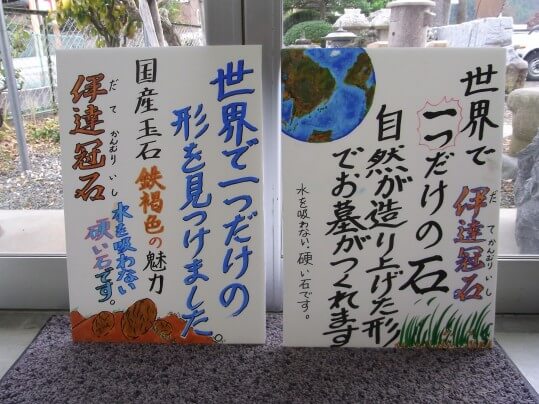 世界で一つだけの
形を見つけました。
国産玉石 鉄褐色の魅力
伊達冠石
だてかんむりいし
水を吸わない
硬い石です。
世界で
一つだけの石
伊達冠石
だてかんむりいし
自然が造り上げた形
でお墓がつくれます
水を吸わない、硬い石です。